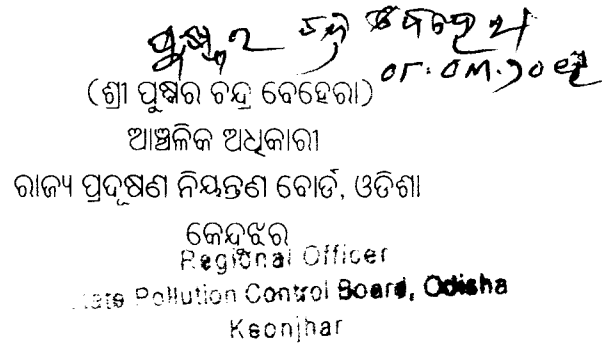 ପୁଷ୍କର ଚନ୍ଦ୍ର ବେହେରା
(ଶ୍ରୀ ପୁଷ୍କର ଚନ୍ଦ୍ର ବେହେରା)
ଆଞ୍ଚଳିକ ଅଧିକାରୀ
ରାଜ୍ୟ ପ୍ରଦୂଷଣ ନିୟନ୍ତ୍ରଣ ବୋର୍ଡ, ଓଡିଶା
କେନ୍ଦୁଝର
Regional Officer
State Pollution Control Board, Odisha
Keonjhar